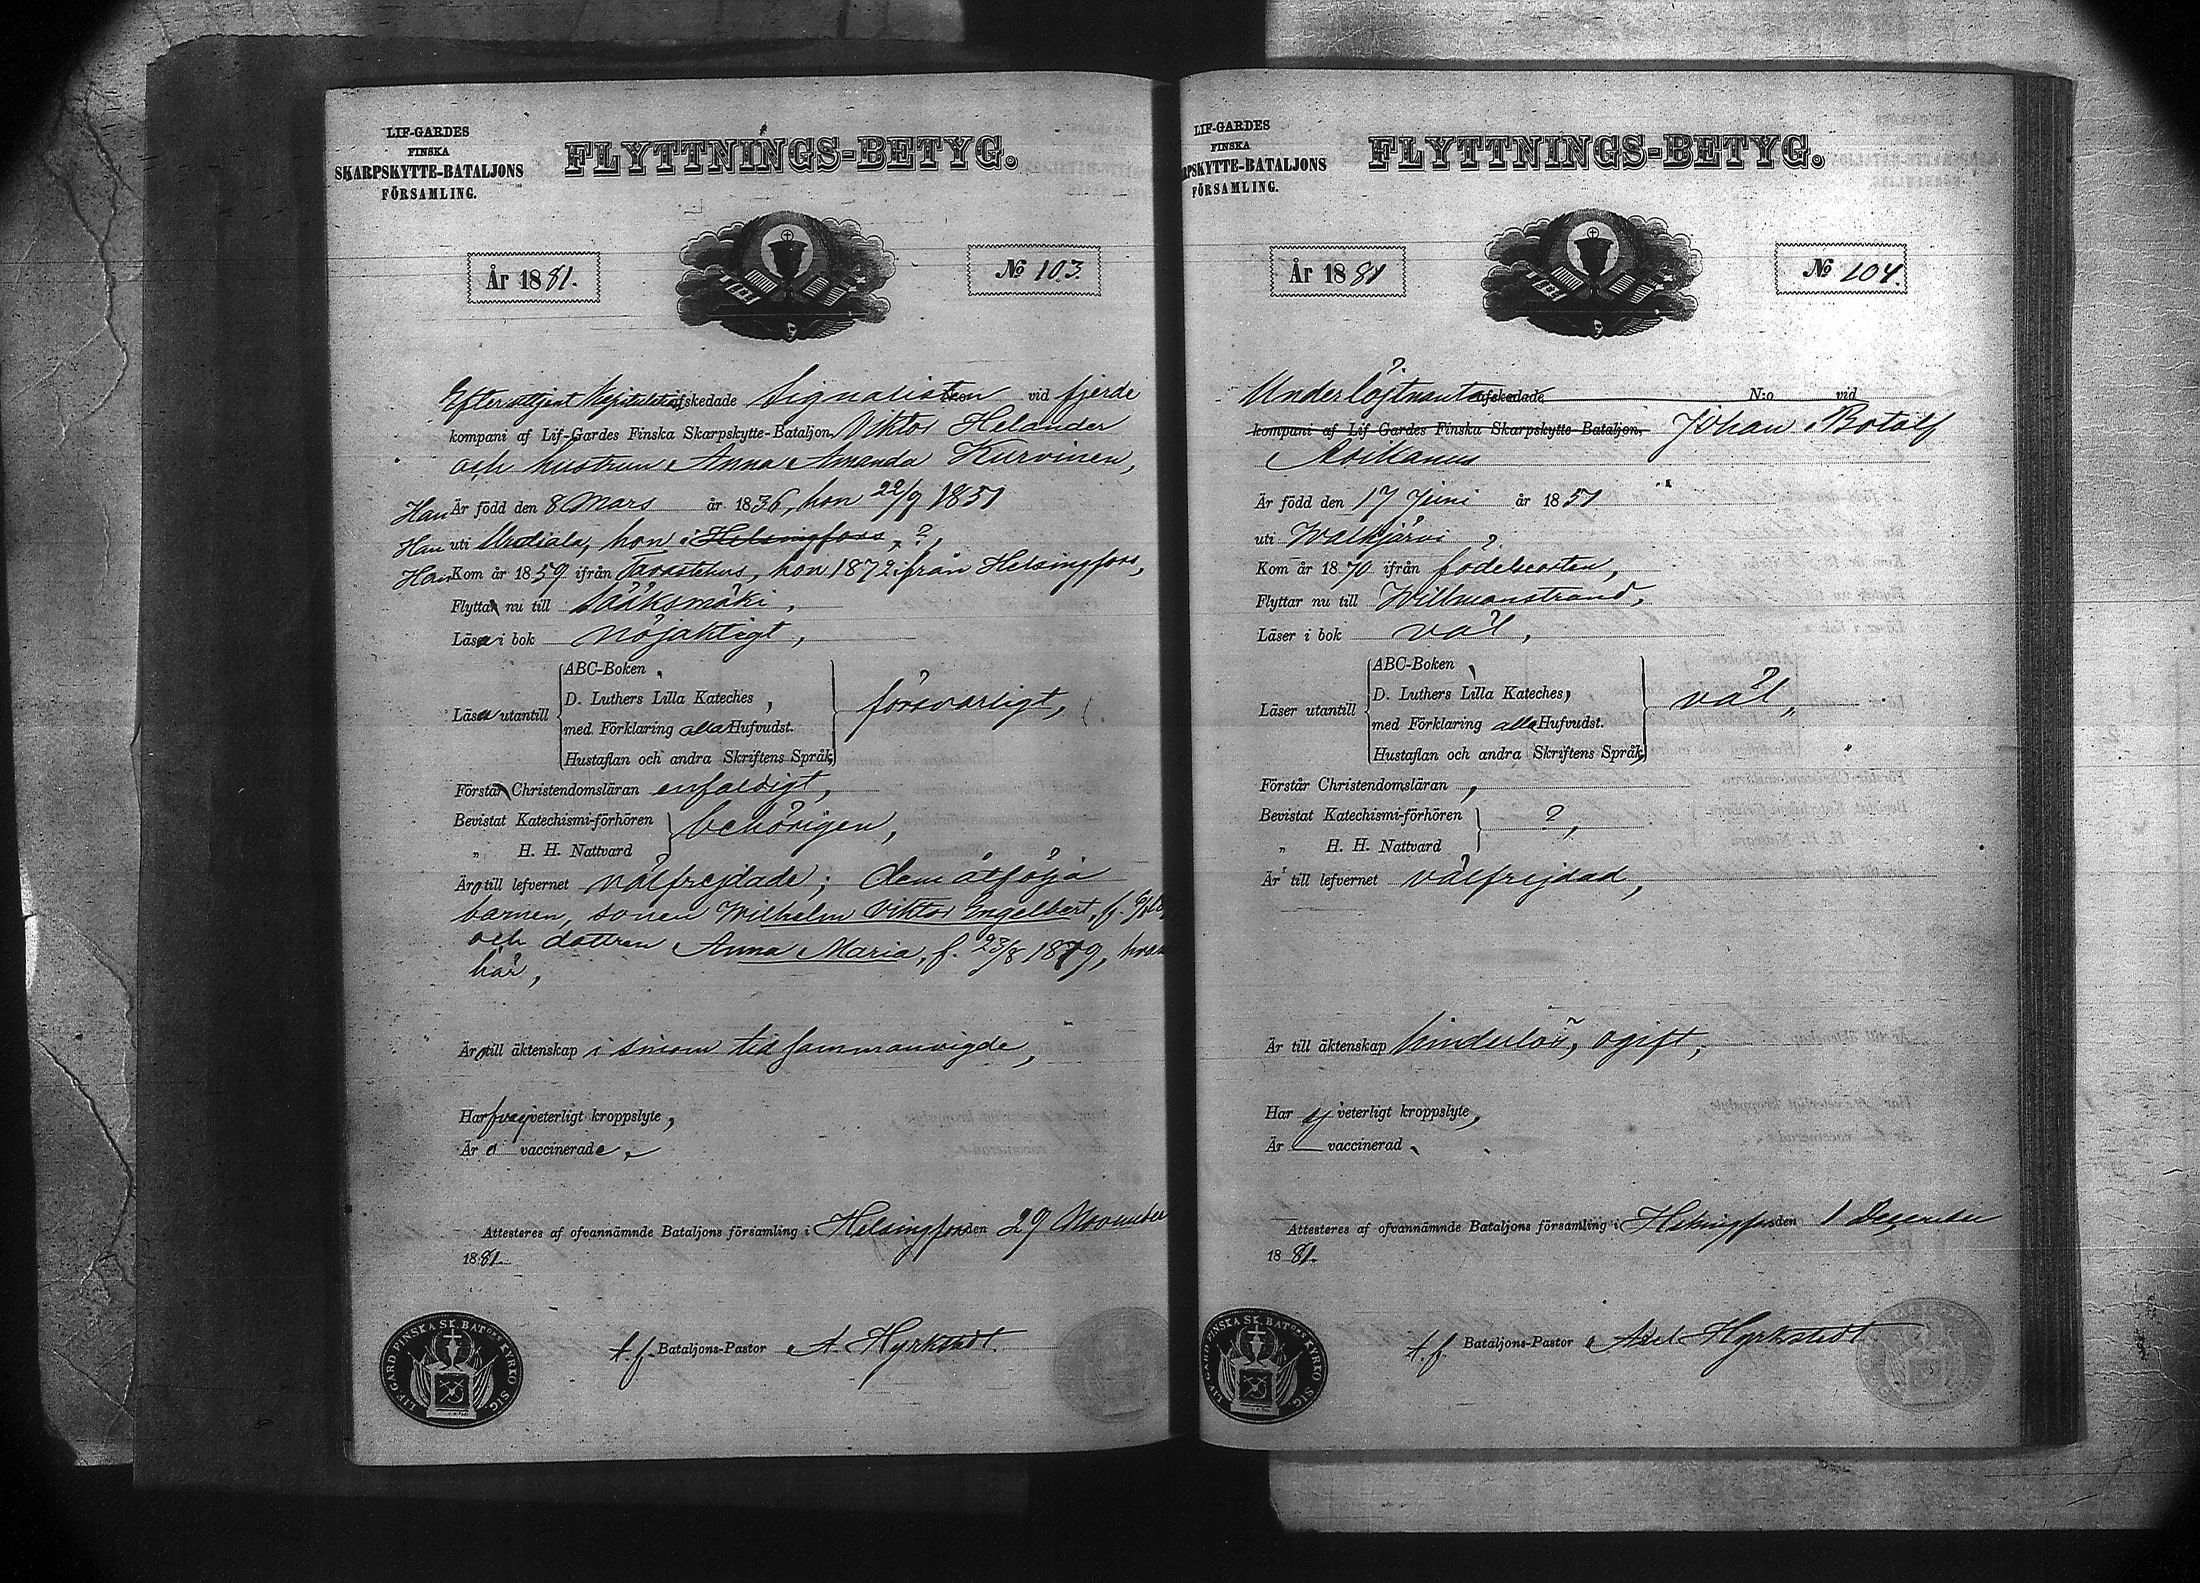 LIF-GARDES
FINSKA
SKARPSKYTTE-BATALJONS
FÖRSAMLING.
FLYTTNINGS-BETYG.
År 1881.
№ 103.
Efter uttjent Kapitulation afskedade Signalisten vid fjerde
kompani af Lif-Gardes Finska Skarpskytte-Bataljon, Viktor Helander
och hustrun Anna Amanda Kurvinen,
Han Är född den 8 Mars år 1836, hon 22/9 1851
Han uti Urdiala, hon i Helsingfors, ?,
Han Kom år 1859 ifrån Tavastehus, hon 1872 ifrån Helsingfors,
Flytta nu till Sääksmäki,
Läsa i bok nöjaktigt,
ABC-Boken,
D. Luthers Lilla Kateches,
Läsa utantill
med Förklaring alla Hufvudst.
försvarligt,
Hustaflan och andra Skriftens Språk,
Förstå Christendomsläran enfaldigt,
Bevistat Katechismi-förhören
behörigen,
„ H. H. Nattvard
Äro till lefvernet välfrejdade; dem åtfölja
barnen, sonen Wilhelm Viktor Engelbert, f.
och dottren Anna Maria, f. 23/8 1879,
här,
Äro till äktenskap i sinom tid sammanvigde,
Har veterligt kroppslyte,
Är o vaccinerade,
Attesteres af ofvannämnde Bataljons församling i Helsingfors den 29 November
1881.
LIV. GARD. FINSKA SK. BATONS KYRKO SIG.
t. f. Bataljons-Pastor A. Hyrkstedt.
LIF-GARDES
FINSKA
RPSKYTTE-BATALJONS
FÖRSAMLING.
FLYTTNINGS-BETYG.
År 1881
№ 104.
Underlöjtnanten afskedade N:o vid
kompani af Lif-Gardes Finska Skarpskytte-Bataljon, Johan Botolf
Är född den 17 Juni år 1851
uti Walkjärvi,
Kom år 1870 ifrån födelseorten,
Flyttar nu till Willmanstrand,
Läser i bok väl,
ABC-Boken,
D. Luthers Lilla Kateches,
Läser utantill
med Förklaring alla Hufvudst.
väl,
Hustaflan och andra Skriftens Språk,
Förstår Christendomsläran,
Bevistat Katechismi-förhören
?,
„ H. H. Nattvard
Är till lefvernet välfrejdad,
Är till äktenskap hinderlös, ogift,
Har ej veterligt kroppslyte,
Är vaccinerad.
Attesteres af ofvannämnde Bataljons församling i Helsingfors den 1 December
1881.
LIV. GARD FINSKA SK. BATONS KYRKO SIG.
t. f. Bataljons-Pastor Axel Hyrkstedt